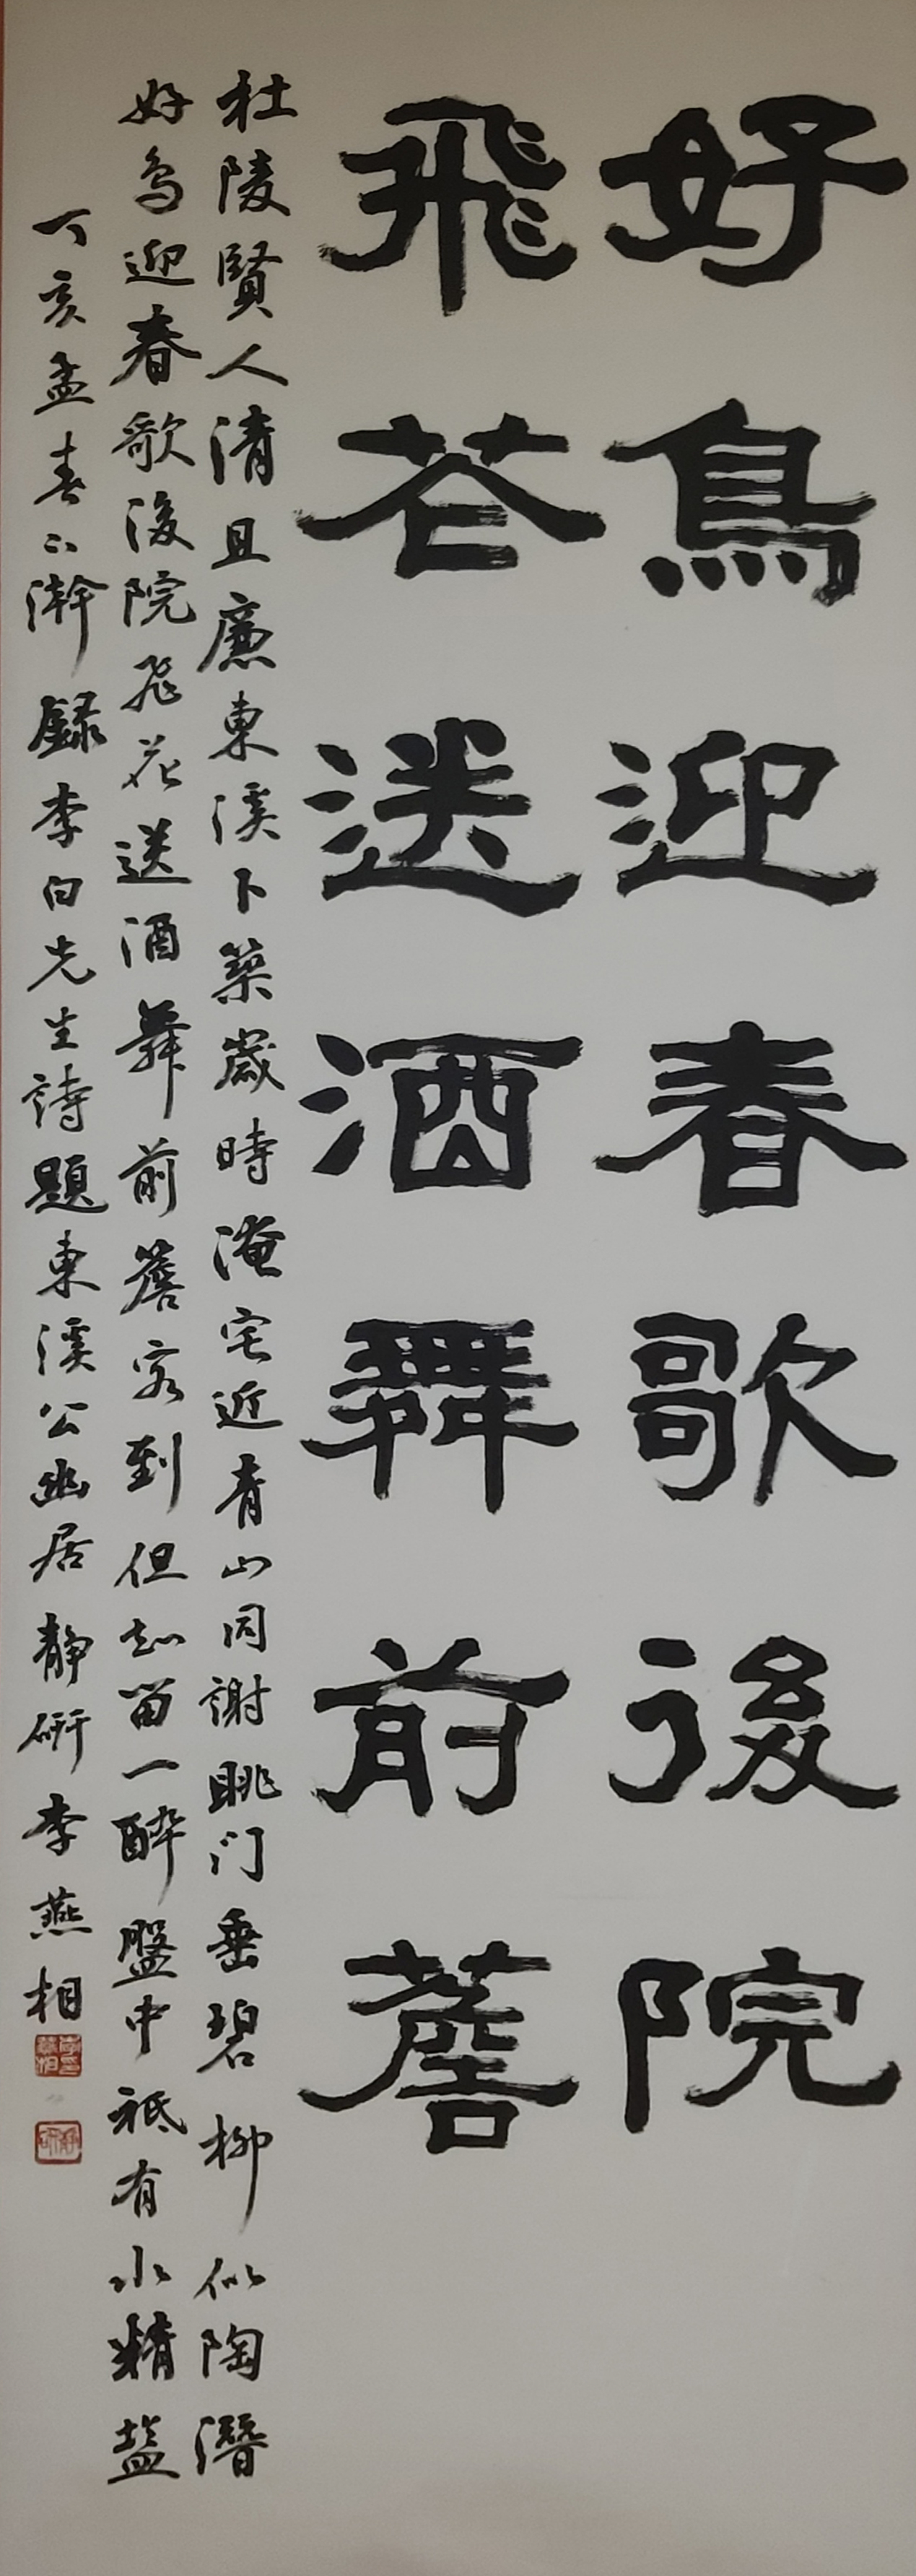 好鳥迎春歌後院
飛花送酒舞前簷
杜陵賢人清且廉東溪卜築歲時淹宅近青山同謝眺门垂碧柳似陶潛
好鳥迎春歌後院飛花送酒舞前簷客到但知留一醉盤中祗有水精盐
丁亥孟春下澣錄李白先生詩題東溪公幽居靜研李燕相